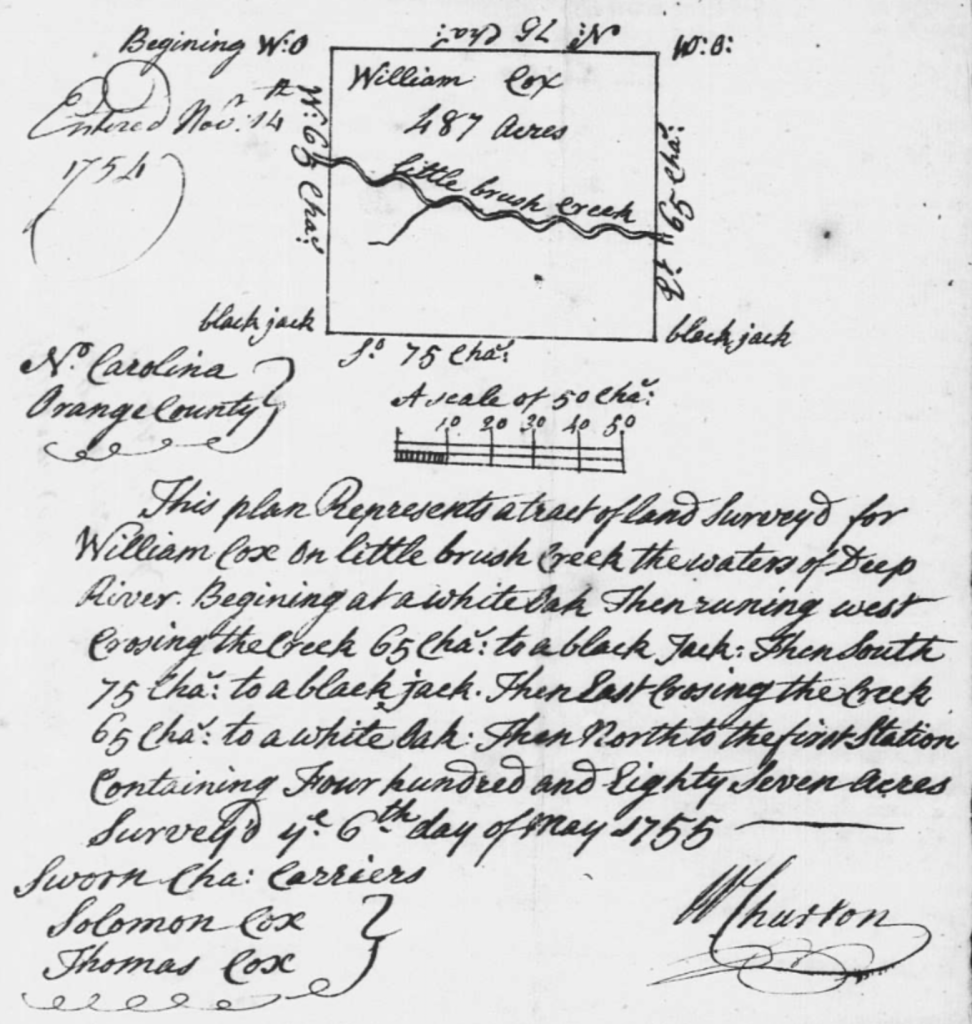 Begining W:O
N: 75 Cha:
W: O:
Entered Nov.r 14th
1754
W: 65 Cha.:
William Cox
487 Acres
little brush Creek
Et 65 Cha.r:
black jack
black jack
So 75 Cha.r:
No. Carolina
Orange County
A scale of 50 Cha.r:
10 20 30 40 50
This plan Represents a tract of land Survey'd for
William Cox on little brush Creek the waters of Deep
River. Begining at a white Oak Then runing west
Crosing the Creek 65 Cha.r: to a black Jack: Then South
75 Cha.r: to a black jack. Then East Crosing the Creek
65 Cha.r: to a white Oak. Then North to the first Station
Containing Four hundred and Eighty Seven Acres
Survey'd ye. 6th day of May 1755
Sworn Cha: Carriers
Solomon Cox
Thomas Cox
W Churton